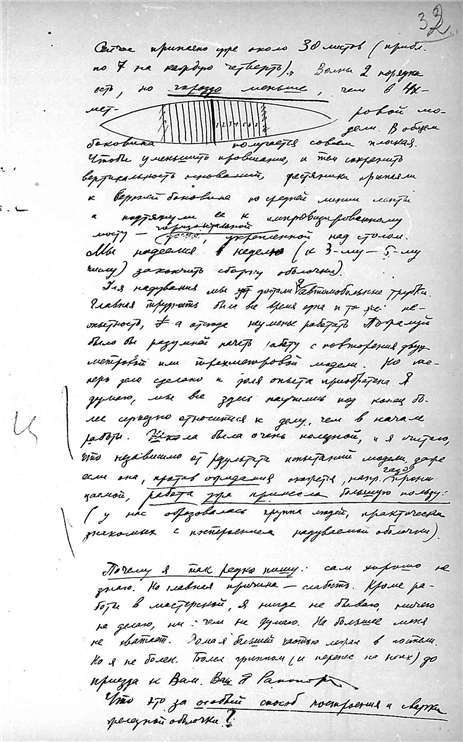 32
Сейчас припаено уже около 30 листов (прибл.
по 7 на каждую четверть). Волны 2 порядка
есть, но гораздо меньше, чем в 4х
мет- ровой мо-
1 2 3 4
дели. В общем
боковина получается совсем плоская.
Чтобы уменьшить провисание, и тем сохранить
вертикальность оснований,
к верхней боковине по средней линии
и подтянули ее к импровизированному
мосту — горизонтальной
укрепленной над столом
Мы надеемся в неделю (к 3-му — 5-му
числу) закончить сборку оболочки).
Для надувания мы достали автомобильные трубки.
Главная трудность была все время одна и та же: не-
опытность, а отсюда неуменье работать. Пожалуй
было бы разумней начать работу с повторения двух-
метровой или трехметровой модели. Но те-
перь дело сделано и доля опыта приобретена. Я
думаю, мы все здесь научились под конец бо-
лее серьезно относиться к делу, чем в начале
работы. Школа была очень полезной, и я считаю,
что независимо от результата испытаний модели, даже
если она, против ожидания окажется, напр.
работа уже принесла большую пользу:
(у нас образовалась группа людей, практически
знакомых с построением надуваемой оболочки).
Почему я так редко пишу: сам хорошо не
знаю. Но главная причина — слабость. Кроме ра-
боты в мастерской, я нигде не бываю, ничего
не делаю, ни о чем не думаю. На большее меня
не хватает. Дома я большей частью лежу в постели.
Но я не болен. Болел гриппом (и перенес на ногах) до
приезда к Вам. Ваш Я Рапопорт
Что это за особый способ построения и сварки
оболочки?